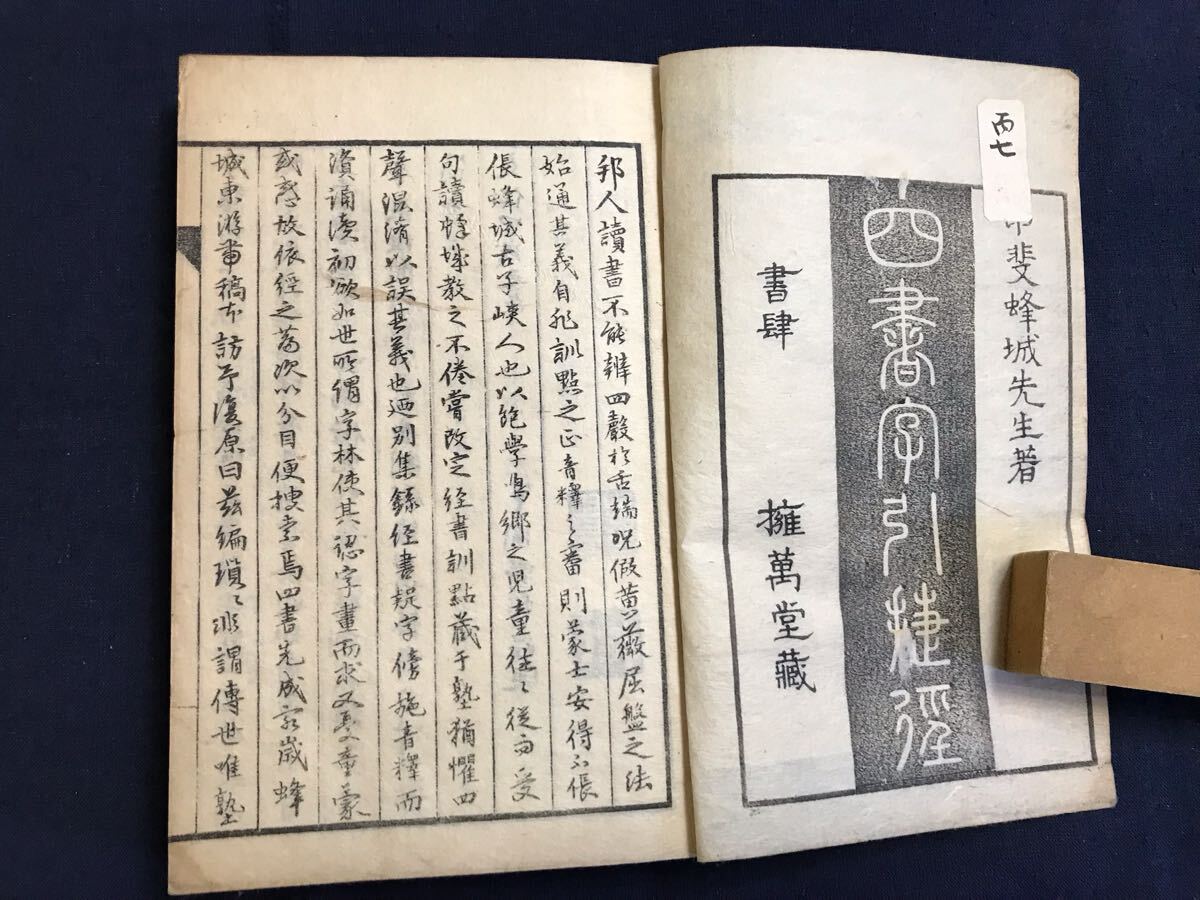 丙七
斐蜂城先生著
四書字引捷徑
書肆 擁萬堂藏
邦人讀書不能辨四聲於舌端況假黄薇屈盤之法
始通其義自非訓點之正音釋之審則蒙士安得不倀
倀蜂城古子峽人也以飽學為鄉之児童往〻從而受
句讀蜂城教之不倦嘗改定經書訓點藏于塾猶懼四
聲混淆以誤其義也廼別集録經書疑字傍施音釋而
資誦讀初欲如世所謂字林使其認字畫而求又憂童蒙
或惑故依經之篇次以分目便搜索焉四書先成客歳蜂
城東游齎稿本訪予復原曰茲編瑣〻非謂傳世唯塾